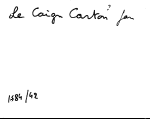 Le Caign Carton? Jan
1584/42